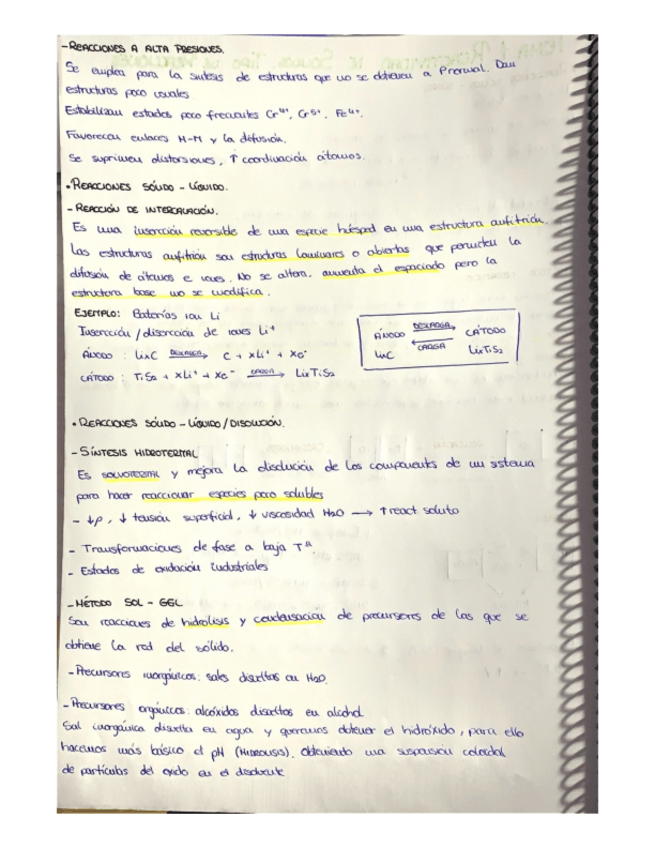 - REACCIONES A ALTA PRESIONES.
Se emplea para la síntesis de estructuras que no se obtienen a Pnormal. Dan
estructuras poco usuales
Estabilizan estados poco frecuentes Cr4+, Cr5+, Fe4+.
Favorecen enlaces M-M y la difusión.
Se suprimen distorsiones, ↑ coordinación átomos.
• REACCIONES SÓLIDO - LÍQUIDO.
- REACCIÓN DE INTERCALACIÓN.
Es una inserción reversible de una especie huésped en una estructura anfitrión.
Las estructuras anfitrión son estructuras laminares o abiertas que permiten la
difusión de átomos e iones. No se altera, aumenta el espaciado pero la
estructura base no se modifica.
EJEMPLO: Baterías ion Li
Inserción / diserción de iones Li+
ÁNODO : LixC DESCARGA→ C + xLi+ + Xe-
CÁTODO : TiS2 + xLi+ + Xe- CARGA→ LixTiS2
ÁNODO DESCARGA→ CÁTODO
LixC ←CARGA LixTiS2
• REACCIONES SÓLIDO - LÍQUIDO / DISOLUCIÓN.
- SÍNTESIS HIDROTERMAL
Es SOLVOTERMAL y mejora la disolución de los componentes de un sistema
para hacer reaccionar especies poco solubles
- ↓ρ, ↓ tensión superficial, ↓ viscosidad H2O → ↑ react soluto
- Transformaciones de fase a baja Tª
- Estados de oxidación industriales
- MÉTODO SOL - GEL
Son reacciones de hidrólisis y condensación de precursores de las que se
obtiene la red del sólido.
- Precursores inorgánicos: sales disueltas en H2O.
- Precursores orgánicos: alcóxidos disueltos en alcohol
Sal inorgánica disuelta en agua y queremos obtener el hidróxido, para ello
hacemos más básico el pH (HIDRÓLISIS). Obteniendo una suspensión coloidal
de partículas del óxido en el disolvente